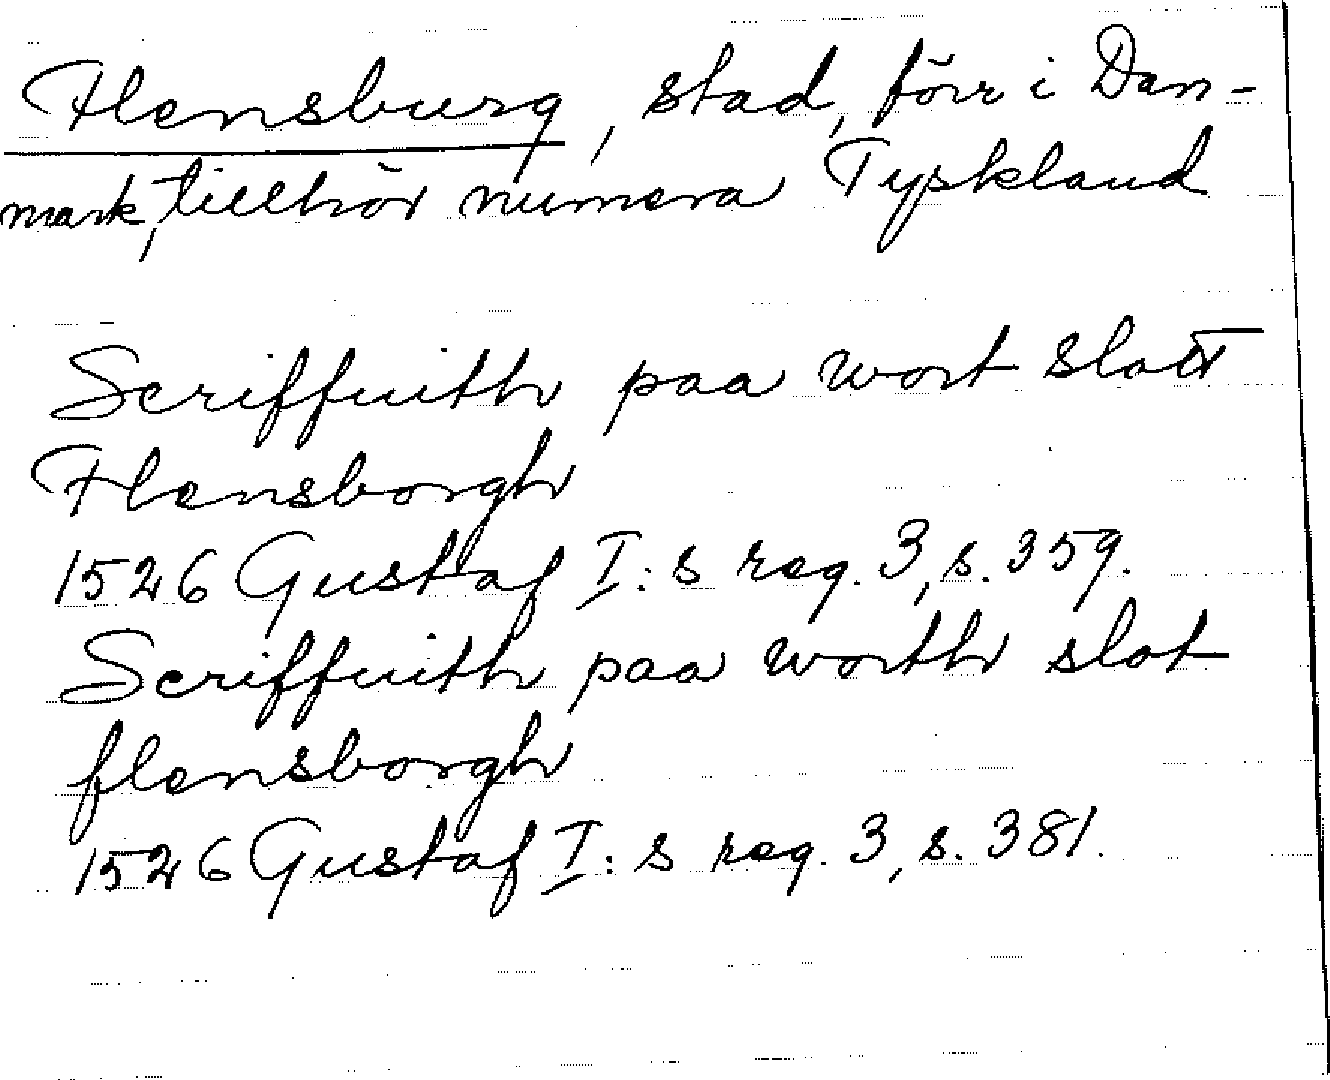 Flensburg, stad, förr i Dan-
mark, tillhör numera Tyskland
Scriffuith paa wort slott
Flensborgh
1526 Gustaf I:s reg. 3, s. 359.
Scriffuith paa worth slot
flensborgh
1526 Gustaf I:s reg. 3, s. 381.